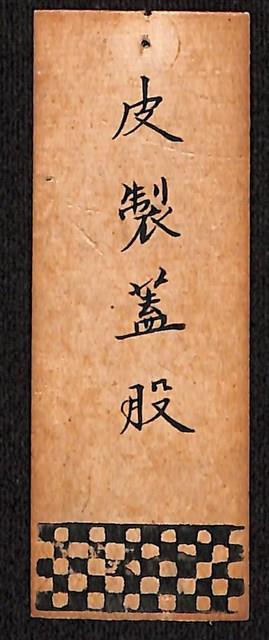 皮製蓋股